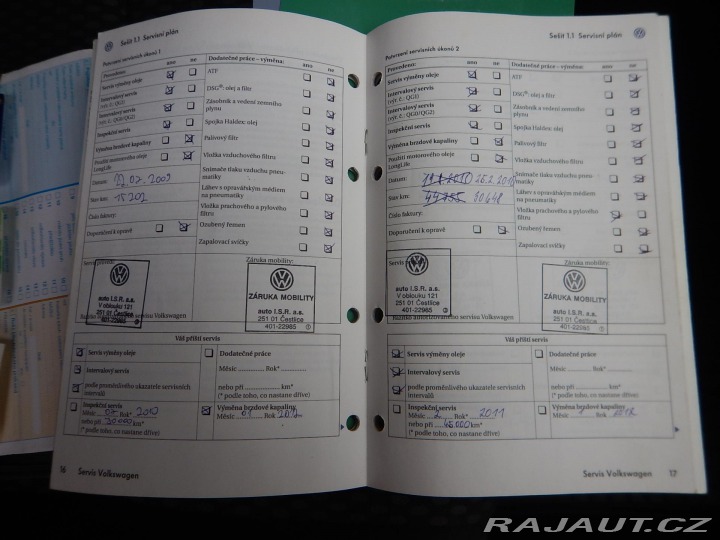 Sešit 1.1 Servisní plán
Potvrzení servisních úkonů 1
Provedeno: ano ne
Servis výměny oleje
Intervalový servis
(výr. č.: QG1)
Intervalový servis
(výr. č.: QG0/QG2)
Inspekční servis
Výměna brzdové kapaliny
Použití motorového oleje
LongLife
Datum: 2009
Stav km: 15202
Číslo faktury:
Doporučení k opravě
Dodatečné práce – výměna: ano ne
ATF
DSG®: olej a filtr
Zásobník a vedení zemního
plynu
Spojka Haldex: olej
Palivový filtr
Vložka vzduchového filtru
Snímače tlaku vzduchu pneu-
matiky
Láhev s opravářským médiem
na pneumatiky
Vložka prachového a pylového
filtru
Ozubený řemen
Zapalovací svíčky
Záruka mobility:
auto I.S.R. a.s.
V oblouku 121
251 01 Čestlice
401-22985
ZÁRUKA MOBILITY
auto I.S.R. a.s.
251 01 Čestlice
401-22985
servisu Volkswagen
Váš příští servis
Servis výměny oleje
Intervalový servis
podle proměnlivého ukazatele servisních
intervalů
Dodatečné práce
Měsíc Rok*
nebo při km*
(* podle toho, co nastane dříve)
Inspekční servis
Měsíc Rok* 2010
nebo při 30000 km*
(* podle toho, co nastane dříve)
Výměna brzdové kapaliny
Měsíc 01 Rok 2012
16 Servis Volkswagen
Sešit 1.1 Servisní plán
Potvrzení servisních úkonů 2
Provedeno: ano ne
Servis výměny oleje
Intervalový servis
(výr. č.: QG1)
Intervalový servis
(výr. č.: QG0/QG2)
Inspekční servis
Výměna brzdové kapaliny
Použití motorového oleje
LongLife
Datum: 25.2.2010
Stav km: 30648
Číslo faktury:
Doporučení k opravě
Dodatečné práce – výměna: ano ne
ATF
DSG®: olej a filtr
Zásobník a vedení zemního
plynu
Spojka Haldex: olej
Palivový filtr
Vložka vzduchového filtru
Snímače tlaku vzduchu pneu-
matiky
Láhev s opravářským médiem
na pneumatiky
Vložka prachového a pylového
filtru
Ozubený řemen
Zapalovací svíčky
Servis
Záruka mobility:
auto I.S.R. a.s.
V oblouku 121
251 01 Čestlice
401-22985
ZÁRUKA MOBILITY
auto I.S.R. a.s.
251 01 Čestlice
401-22985
Razítko autorizovaného servisu Volkswagen
Váš příští servis
Servis výměny oleje
Intervalový servis
podle proměnlivého ukazatele servisních
intervalů
Dodatečné práce
Měsíc Rok*
nebo při km*
(* podle toho, co nastane dříve)
Inspekční servis
Měsíc 2 Rok* 2011
nebo při 45000 km*
(* podle toho, co nastane dříve)
Výměna brzdové kapaliny
Měsíc Rok 2012
Servis Volkswagen 17
RAJAUT.CZ